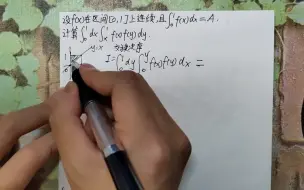 设f(x)在区间[0,1]上连续,且∫₀¹f(x)dx=A.
计算∫₀¹dx∫ₓ¹f(x)f(y)dy.
y=x 交换次序
1 I=∫₀¹dy∫₀ʸf(x)f(y)dx =